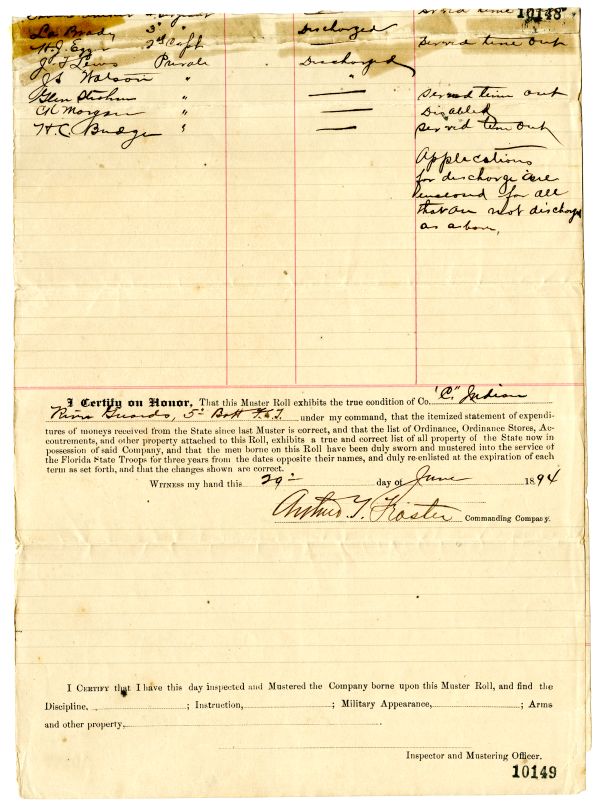 served time 10148
La Brady 3" Discharged
H. J. Ezzo 2nd Capt — served time out
J. T. Lewis Private Discharged
JS Watson " "
Glen " — served time out
CH Morgan " — Disabled
H. C. Budge " — served time out
Applications
for discharge are
enclosed for all
that are not discharged
as above.
I Certify on Honor, That this Muster Roll exhibits the true condition of Co. "C" Indian
River Guards, 5" Batt F.S.T. under my command, that the itemized statement of expendi-
tures of moneys received from the State since last Muster is correct, and that the list of Ordinance, Ordinance Stores, Ac-
contrements, and other property attached to this Roll, exhibits a true and correct list of all property of the State now in
possession of said Company, and that the men borne on this Roll have been duly sworn and mustered into the service of
the Florida State Troops for three years from the dates opposite their names, and duly re-enlisted at the expiration of each
term as set forth, and that the changes shown are correct.
Witness my hand this 29" day of June 1894
Arthur T. Froster Commanding Company.
I Certify that I have this day inspected and Mustered the Company borne upon this Muster Roll, and find the
Discipline, ; Instruction, ; Military Appearance, ; Arms
and other property,
Inspector and Mustering Officer.
10149